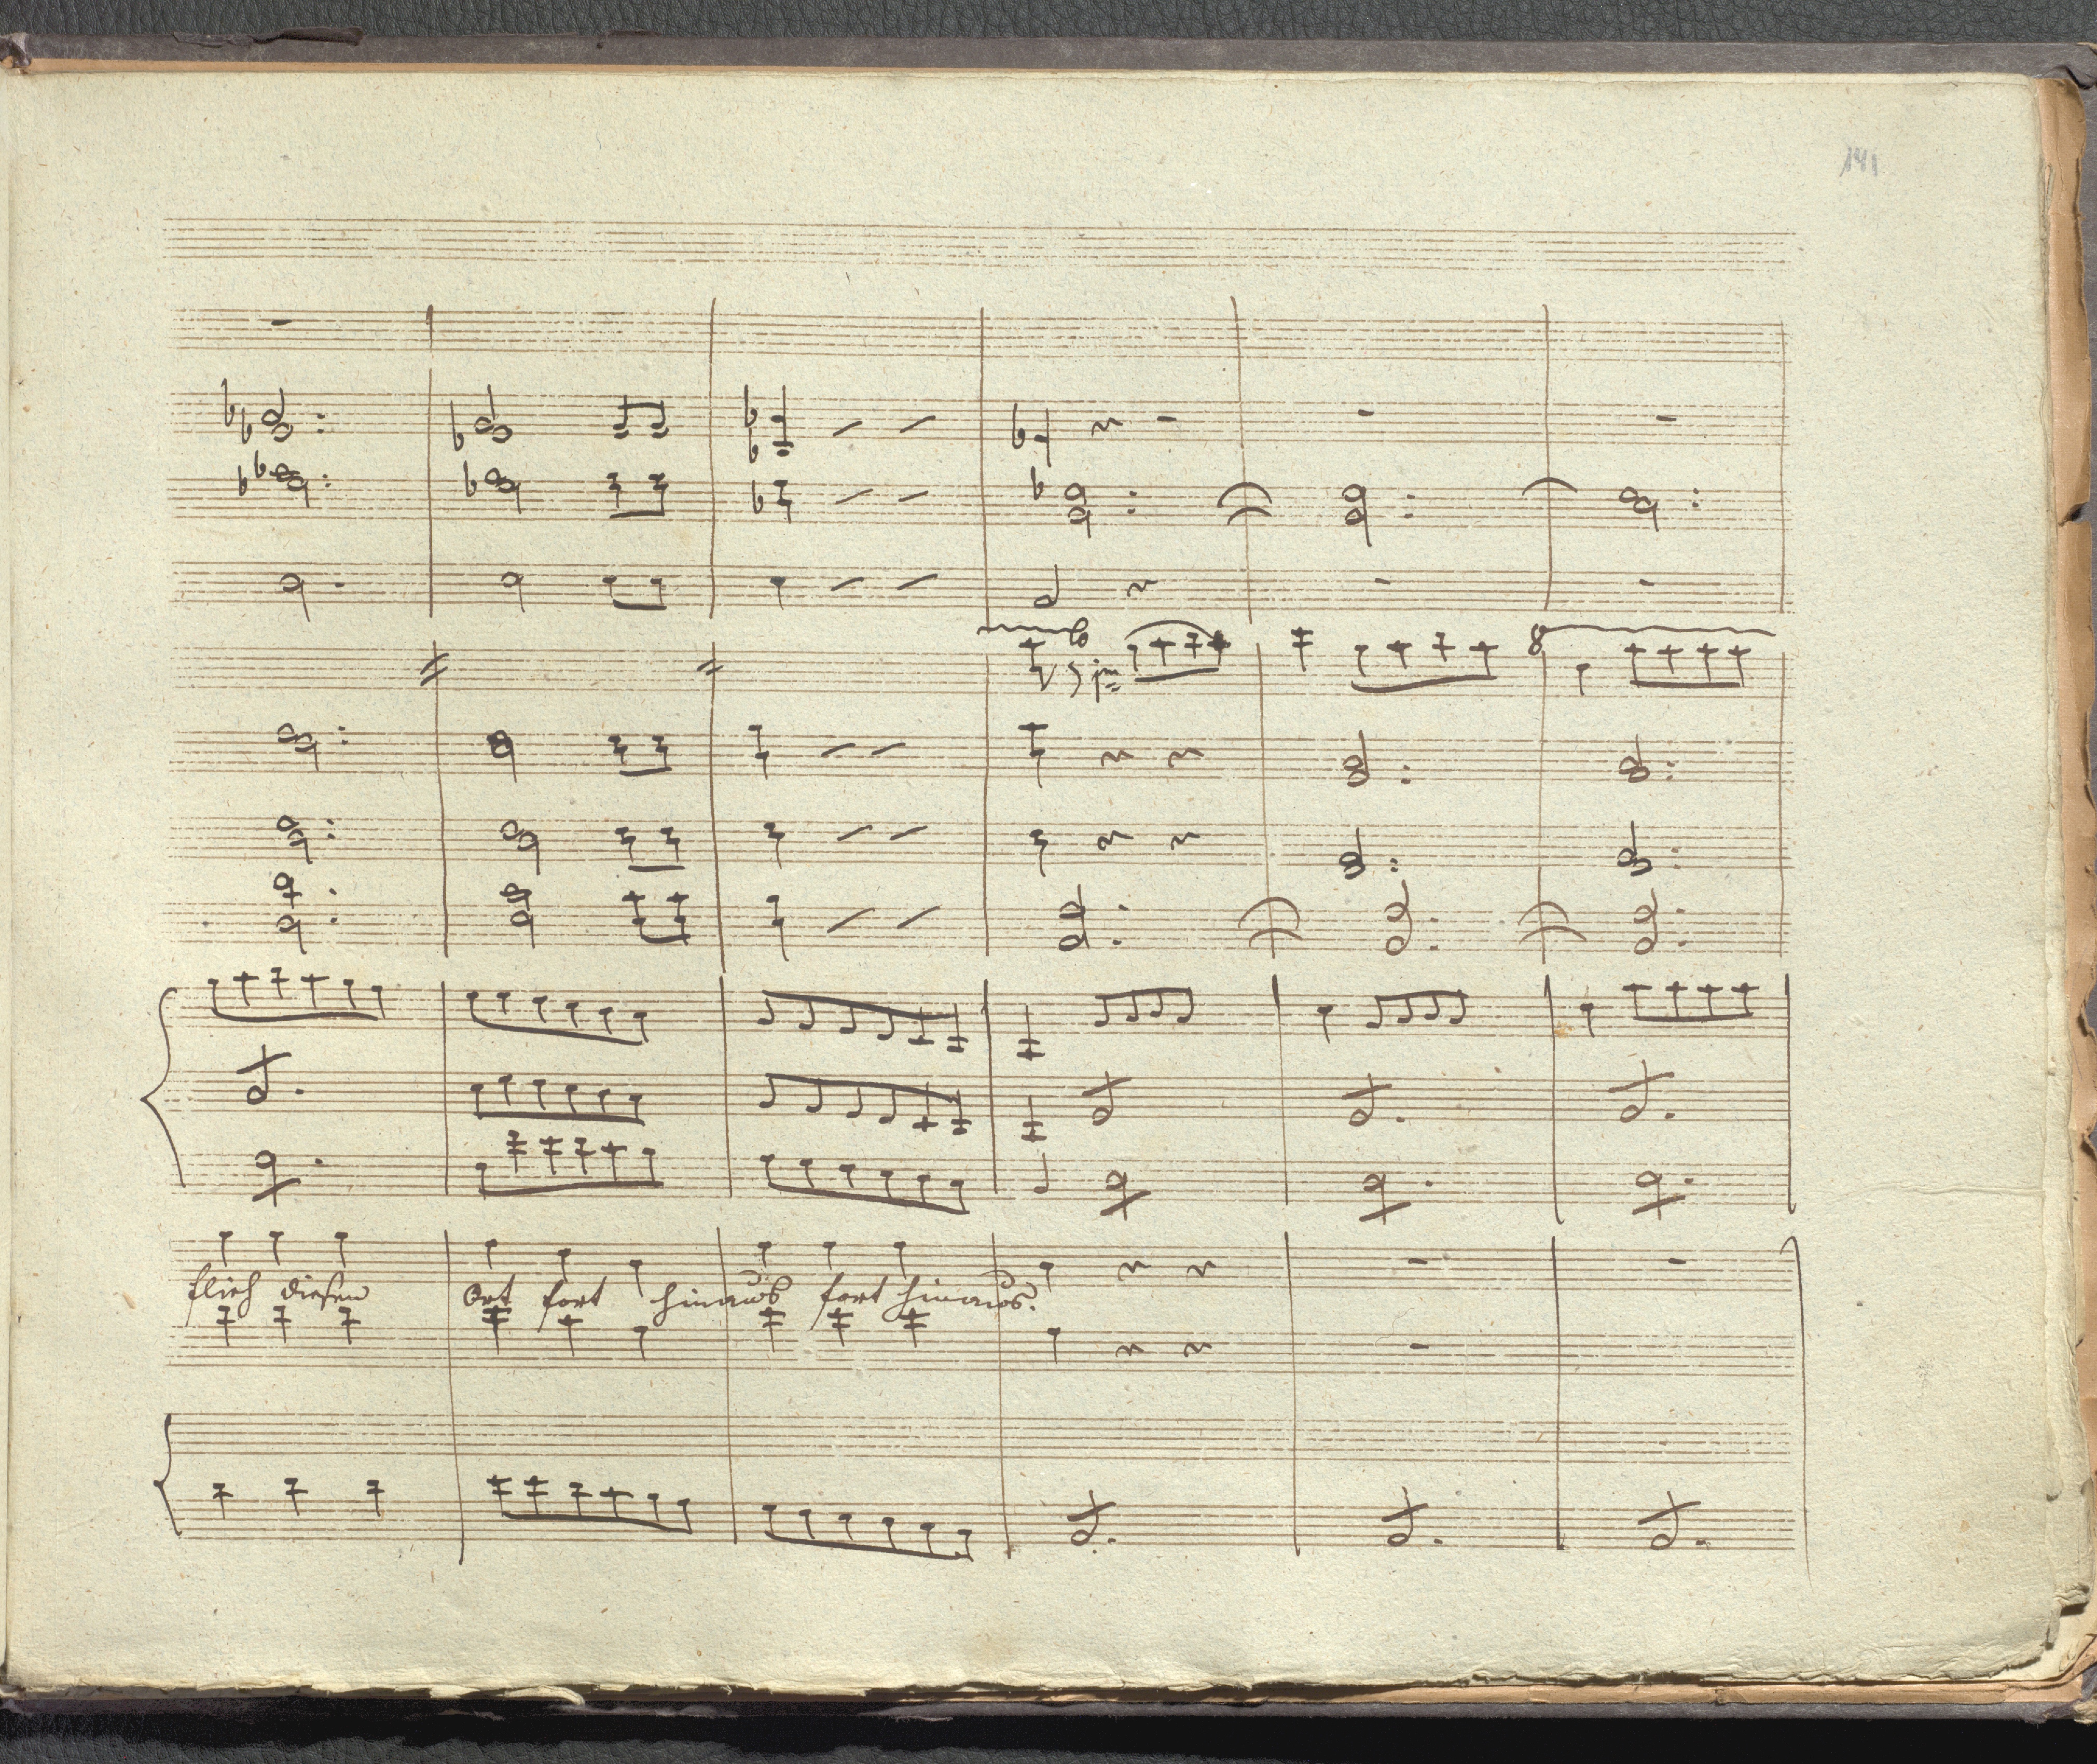 141
8
flieh diesen Ort fort hinaus fort hinaus.